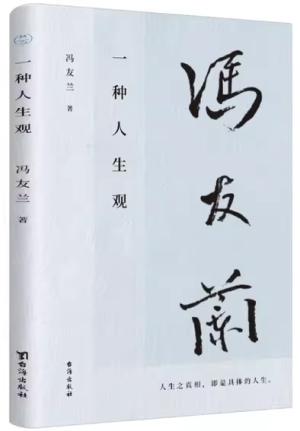 一种人生观
冯友兰 著
台海出版社
馮友蘭
一种人生观
冯友兰 著
人生之真相，即是具体的人生。
台海出版社